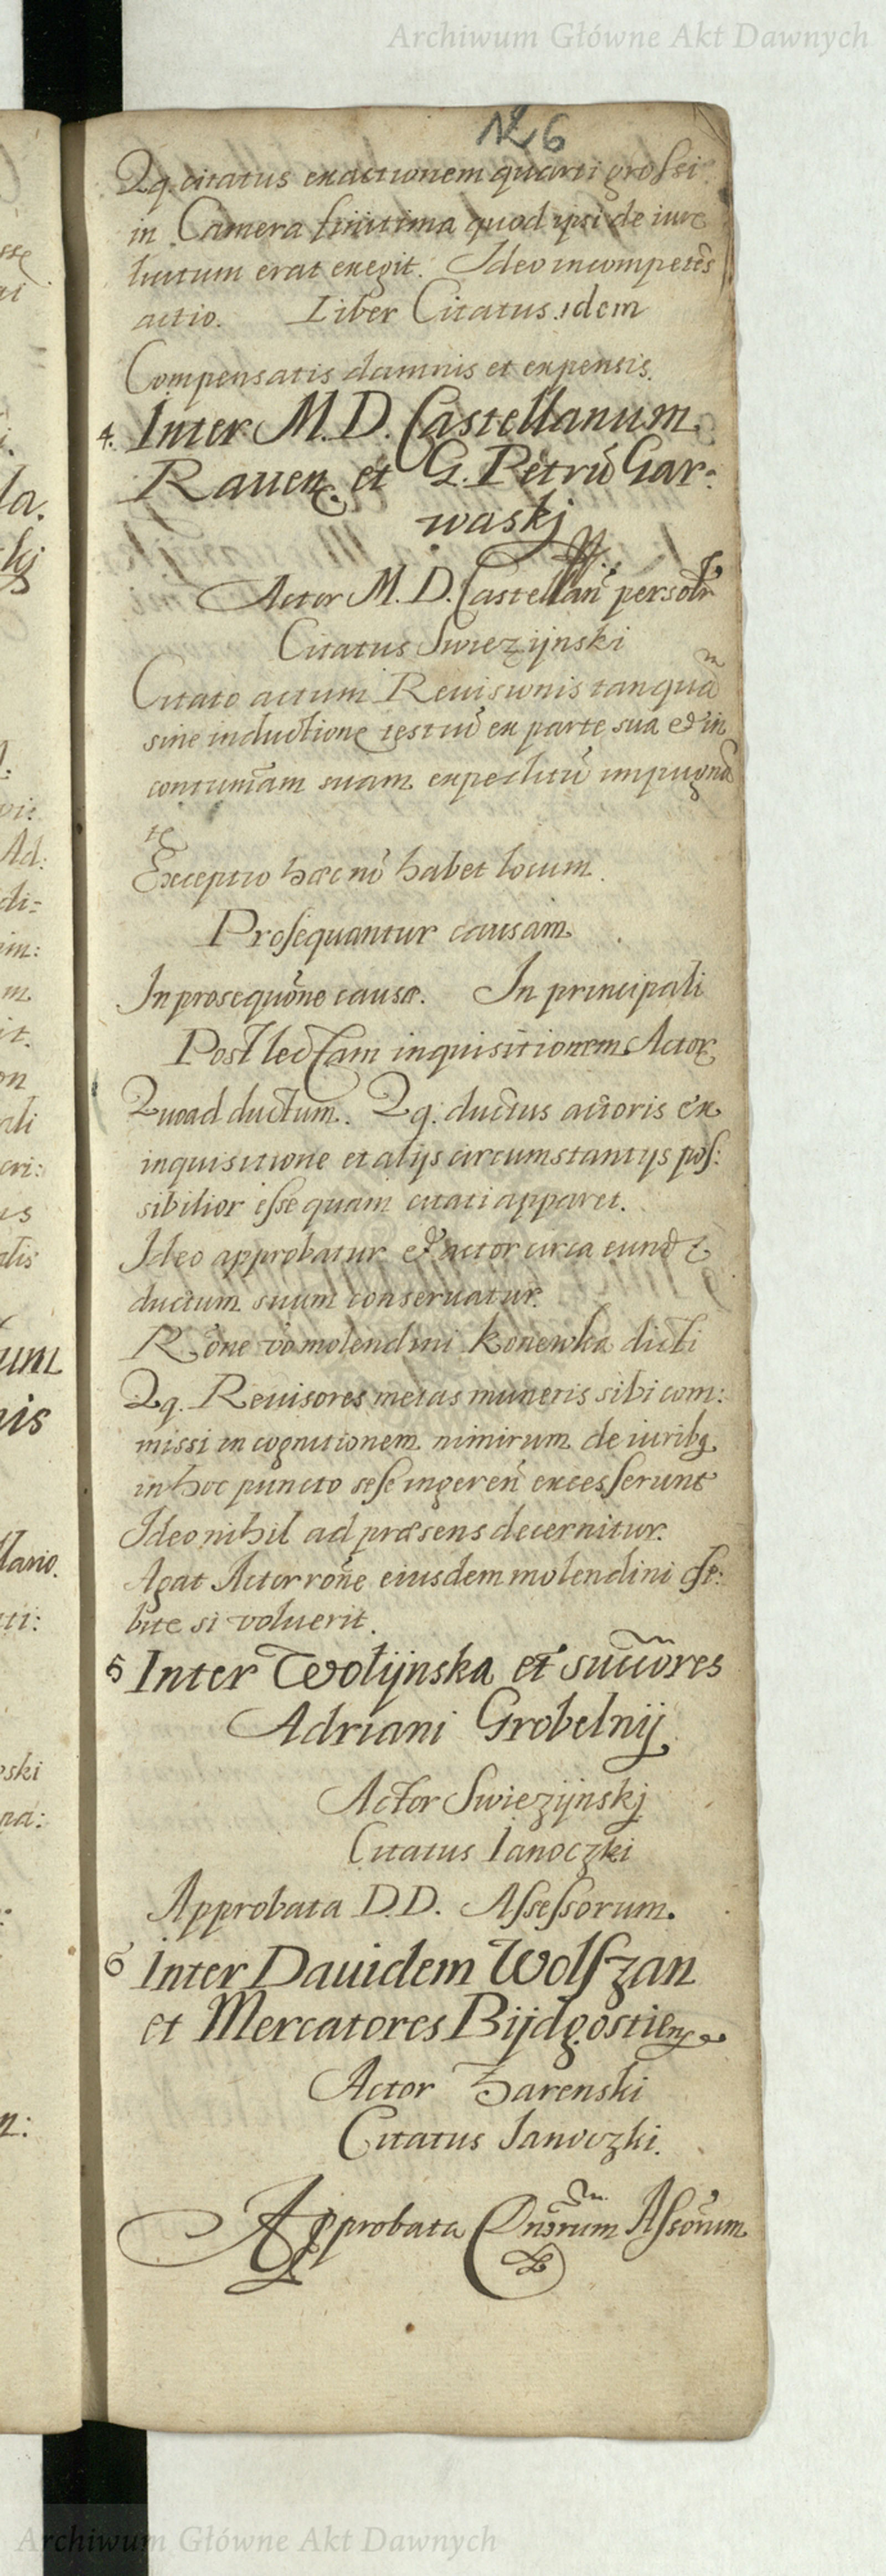 Archiwum Główne Akt Dawnych
6
Qq. citatus exactionem quarti grossi
in Camera finitima quod ipsi de iure
licitum erat exegit. Ideo incompetēs
actio. Liber Citatus idem
Compensatis damnis et expensis.
4. Inter M. D. Castellanum
Rauen. et G. Petrū Gar:
waskj
Actor M. D. Castellan̄ personlr
Citatus Swiezijnski
Citato actum Reuisionis tanquā
sine inductione testiū ex parte sua et in
contumam suam expeditū impugnā
te
Exceptio haec nō habet locum.
Prosequantur causam.
In prosequōne causae. In principali
Post lectam inquisitionem Actor
Quoad ductum. Qq. ductus actoris ex
inquisitione et alijs circumstantijs pos:
sibilior esse quam citati apparet.
Ideo approbatur et actor circa eund
ductum suum conseruatur.
Rōne vō molendini Konewka dicti
Qq. Reuisores metas muneris sibi com:
missi in cognitionem nimirum de iurib9
in hoc puncto sese ingeren̄ excesserunt
Ideo nihil ad praesens decernitur.
Agat Actor rōne eiusdem molendini de:
bite si voluerit.
5 Inter Wolijnska et succōres
Adriani Grobelnij
Actor Swiezijnskj
Citatus Ianoczki
Approbata D.D. Assessorum.
6 Inter Dauidem Wolfzan
et Mercatores Bijdgostien
Actor Zarenski
Citatus Ianoczki.
Approbata Dnōrum Assōrum
Archiwum Główne Akt Dawnych